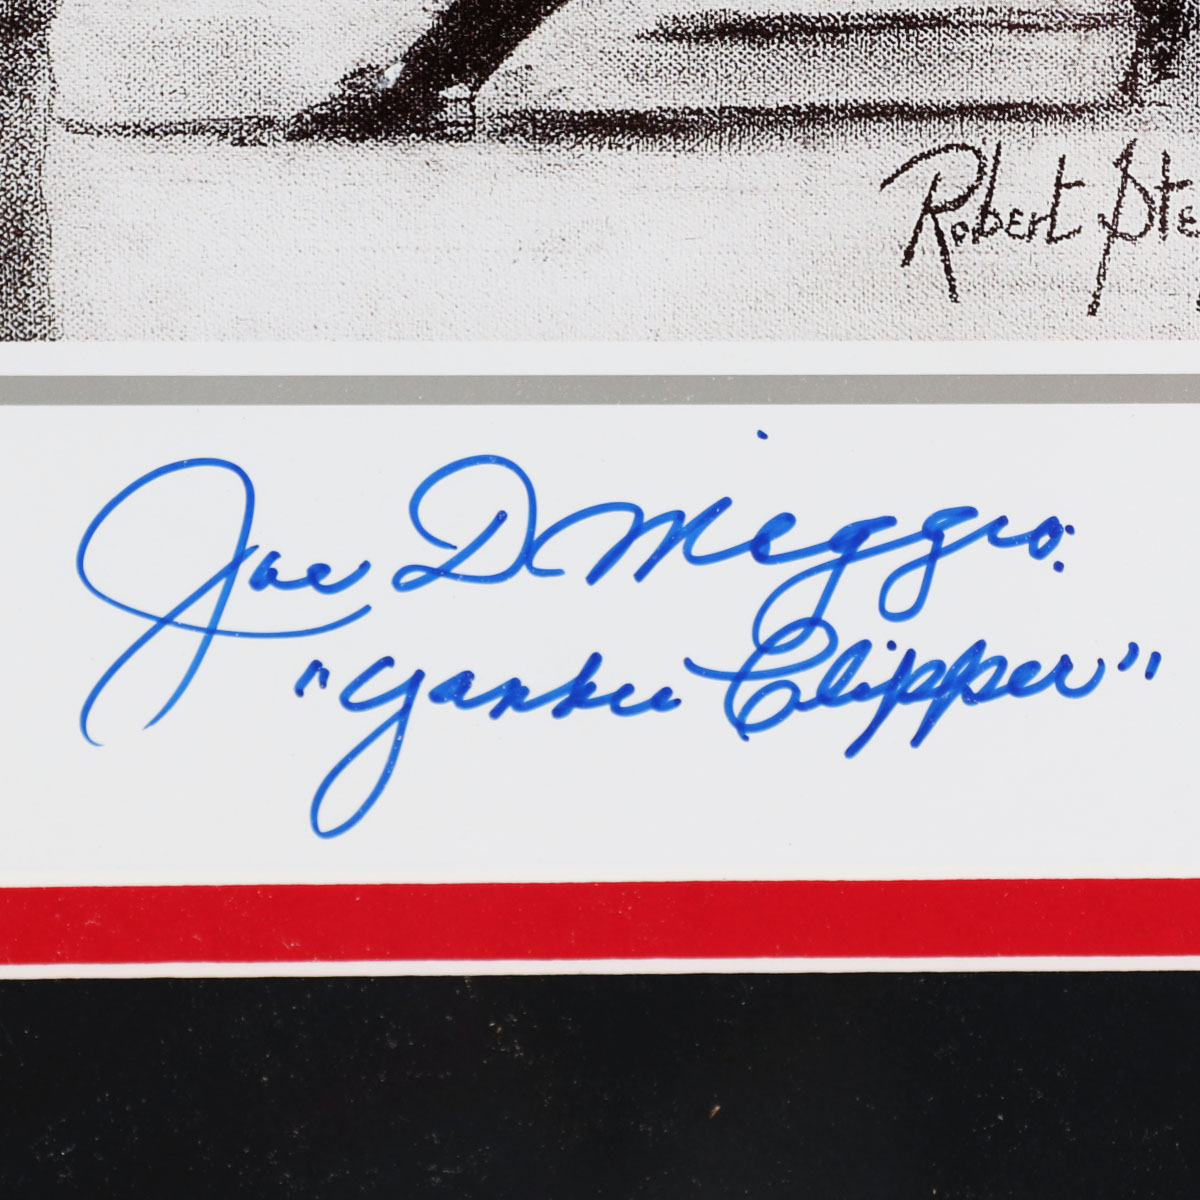 Robert Ste
Joe DiMaggio
"Yankee Clipper"